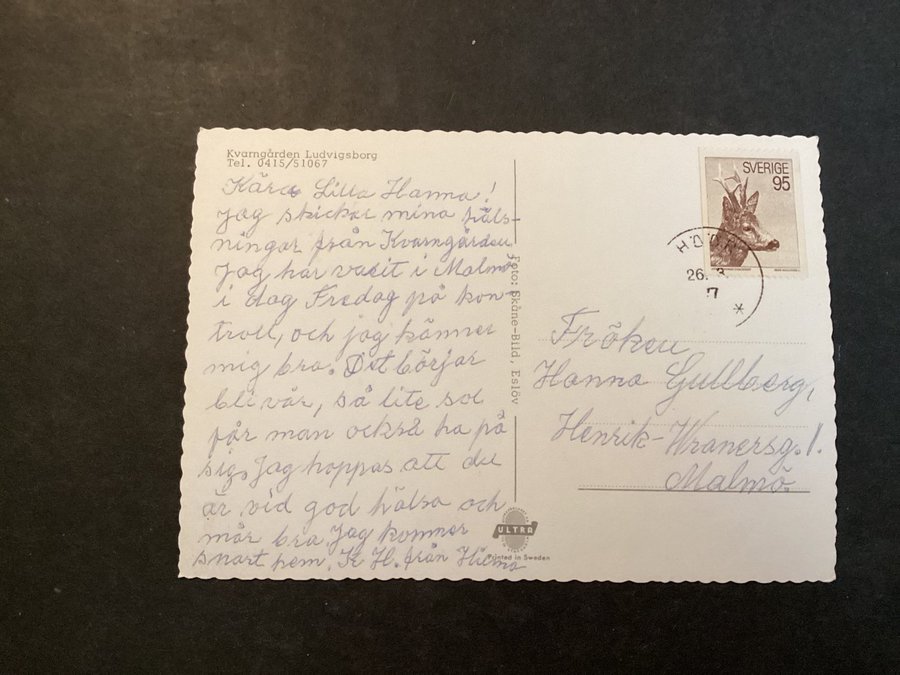 Kvarngården Ludvigsborg
Tel. 0415/51067
Kära Lilla Hanna!
Jag skickar mina häls-
ningar från Kvarngården
Jag har vaeit i Malmö
i dag Fredag på kon-
troll, och jag känner
mig bra. Det börjar
bli vår, så lite sol
får man också ha på
sig. Jag hoppas att du
är vid god hälsa och
mår bra Jag kommer
snart hem. K H. från Hilma
Foto: Skåne-Bild, Eslöv
ULTRA
Printed in Sweden
SVERIGE
95
HÖÖR
26. 3
7
Fröken
Hanna Gullberg,
Henrik-Wranersg. 1.
Malmö.